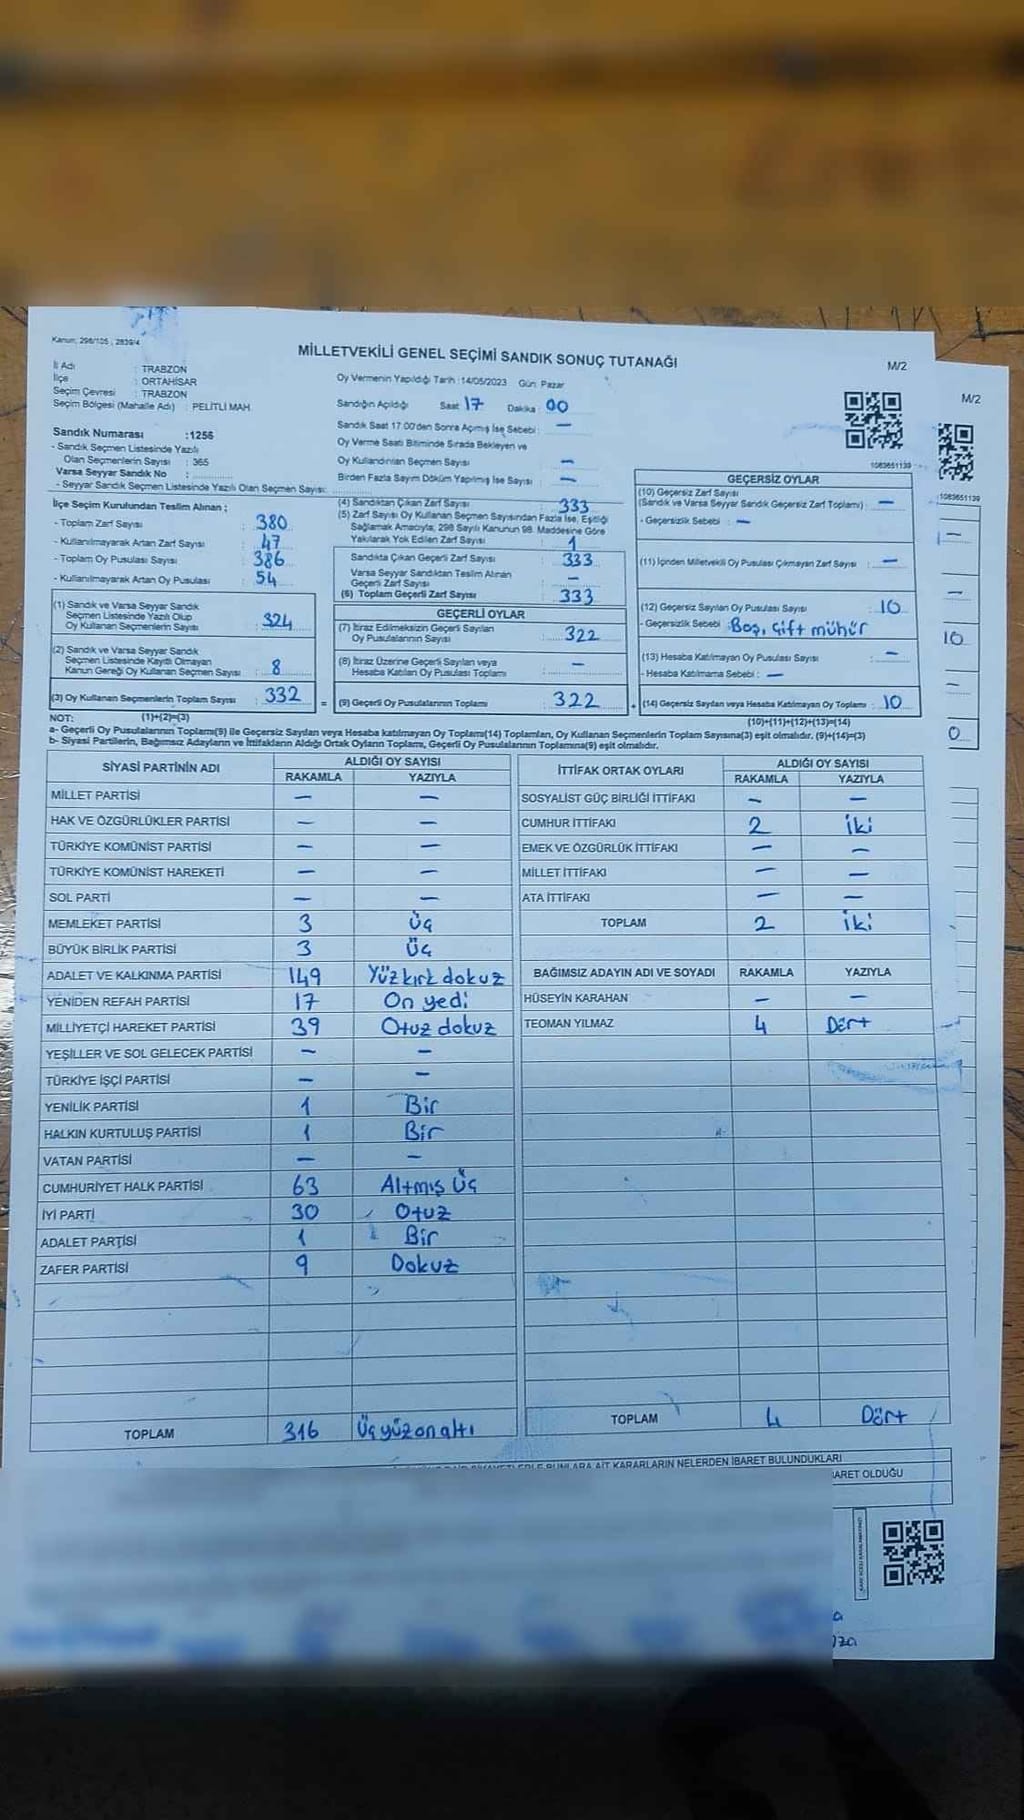 Kanun; 298/105 , 2839/4
MİLLETVEKİLİ GENEL SEÇİMİ SANDIK SONUÇ TUTANAĞI
M/2
M/2
İl Adı : TRABZON
İlçe : ORTAHİSAR
Seçim Çevresi : TRABZON
Seçim Bölgesi (Mahalle Adı) : PELİTLİ MAH.
Sandık Numarası :1256
- Sandık Seçmen Listesinde Yazılı
Olan Seçmenlerin Sayısı : 365
Varsa Seyyar Sandık No :
- Seyyar Sandık Seçmen Listesinde Yazılı Olan Seçmen Sayısı:
Oy Vermenin Yapıldığı Tarih :14/05/2023 Gün: Pazar
Sandığın Açıldığı Saat 17 Dakika : 00
Sandık Saat 17:00'den Sonra Açılmış İse Sebebi : —
Oy Verme Saati Bitiminde Sırada Bekleyen ve
Oy Kullandırılan Seçmen Sayısı : —
Birden Fazla Sayım Döküm Yapılmış İse Sayısı : —
1083651139
1083651139
İlçe Seçim Kurulundan Teslim Alınan ;
- Toplam Zarf Sayısı : 380
- Kullanılmayarak Artan Zarf Sayısı : 47
- Toplam Oy Pusulası Sayısı : 386
- Kullanılmayarak Artan Oy Pusulası : 54
(1) Sandık ve Varsa Seyyar Sandık
Seçmen Listesinde Yazılı Olup
Oy Kullanan Seçmenlerin Sayısı : 324
(2) Sandık ve Varsa Seyyar Sandık
Seçmen Listesinde Kayıtlı Olmayan
Kanun Gereği Oy Kullanan Seçmen Sayısı : 8
(3) Oy Kullanan Seçmenlerin Toplam Sayısı : 332
(4) Sandıktan Çıkan Zarf Sayısı : 333
(5) Zarf Sayısı Oy Kullanan Seçmen Sayısından Fazla İse, Eşitliği
Sağlamak Amacıyla; 298 Sayılı Kanunun 98. Maddesine Göre
Yakılarak Yok Edilen Zarf Sayısı : 1
Sandıkta Çıkan Geçerli Zarf Sayısı : 333
Varsa Seyyar Sandıktan Teslim Alınan
Geçerli Zarf Sayısı : —
(6) Toplam Geçerli Zarf Sayısı : 333
GEÇERLİ OYLAR
(7) İtiraz Edilmeksizin Geçerli Sayılan
Oy Pusulalarının Sayısı : 322
(8) İtiraz Üzerine Geçerli Sayılan veya
Hesaba Katılan Oy Pusulası Toplamı : —
= (9) Geçerli Oy Pusulalarının Toplamı : 322
GEÇERSİZ OYLAR
(10) Geçersiz Zarf Sayısı
(Sandık ve Varsa Seyyar Sandık Geçersiz Zarf Toplamı) : —
- Geçersizlik Sebebi : —
(11) İçinden Milletvekili Oy Pusulası Çıkmayan Zarf Sayısı : —
(12) Geçersiz Sayılan Oy Pusulası Sayısı : 10
- Geçersizlik Sebebi : Boş, Çift mühür
(13) Hesaba Katılmayan Oy Pusulası Sayısı : —
- Hesaba Katılmama Sebebi : —
+ (14) Geçersiz Sayılan veya Hesaba Katılmayan Oy Toplamı : 10
10
0
NOT: (1)+(2)=(3) (10)+(11)+(12)+(13)=(14)
a- Geçerli Oy Pusulalarının Toplamı(9) ile Geçersiz Sayılan veya Hesaba Katılmayan Oy Toplamı(14) Toplamları, Oy Kullanan Seçmenlerin Toplam Sayısına(3) eşit olmalıdır. (9)+(14)=(3)
b- Siyasi Partilerin, Bağımsız Adayların ve İttifakların Aldığı Ortak Oyların Toplamı, Geçerli Oy Pusulalarının Toplamına(9) eşit olmalıdır.
SİYASİ PARTİNİN ADI ALDIĞI OY SAYISI
RAKAMLA YAZIYLA
MİLLET PARTİSİ — —
HAK VE ÖZGÜRLÜKLER PARTİSİ — —
TÜRKİYE KOMÜNİST PARTİSİ — —
TÜRKİYE KOMÜNİST HAREKETİ — —
SOL PARTİ — —
MEMLEKET PARTİSİ 3 Üç
BÜYÜK BİRLİK PARTİSİ 3 Üç
ADALET VE KALKINMA PARTİSİ 149 Yüzkırk dokuz
YENİDEN REFAH PARTİSİ 17 On yedi
MİLLİYETÇİ HAREKET PARTİSİ 39 Otuz dokuz
YEŞİLLER VE SOL GELECEK PARTİSİ — —
TÜRKİYE İŞÇİ PARTİSİ — —
YENİLİK PARTİSİ 1 Bir
HALKIN KURTULUŞ PARTİSİ 1 Bir
VATAN PARTİSİ — —
CUMHURİYET HALK PARTİSİ 63 Altmış Üç
İYİ PARTİ 30 Otuz
ADALET PARTİSİ 1 Bir
ZAFER PARTİSİ 9 Dokuz
TOPLAM 316 Üçyüzonaltı
İTTİFAK ORTAK OYLARI ALDIĞI OY SAYISI
RAKAMLA YAZIYLA
SOSYALİST GÜÇ BİRLİĞİ İTTİFAKI — —
CUMHUR İTTİFAKI 2 İki
EMEK VE ÖZGÜRLÜK İTTİFAKI — —
MİLLET İTTİFAKI — —
ATA İTTİFAKI — —
TOPLAM 2 İki
BAĞIMSIZ ADAYIN ADI VE SOYADI RAKAMLA YAZIYLA
HÜSEYİN KARAHAN — —
TEOMAN YILMAZ 4 Dört
TOPLAM 4 Dört
BUNLARA AİT KARARLARIN NELERDEN İBARET BULUNDUKLARI
BARET OLDUĞU